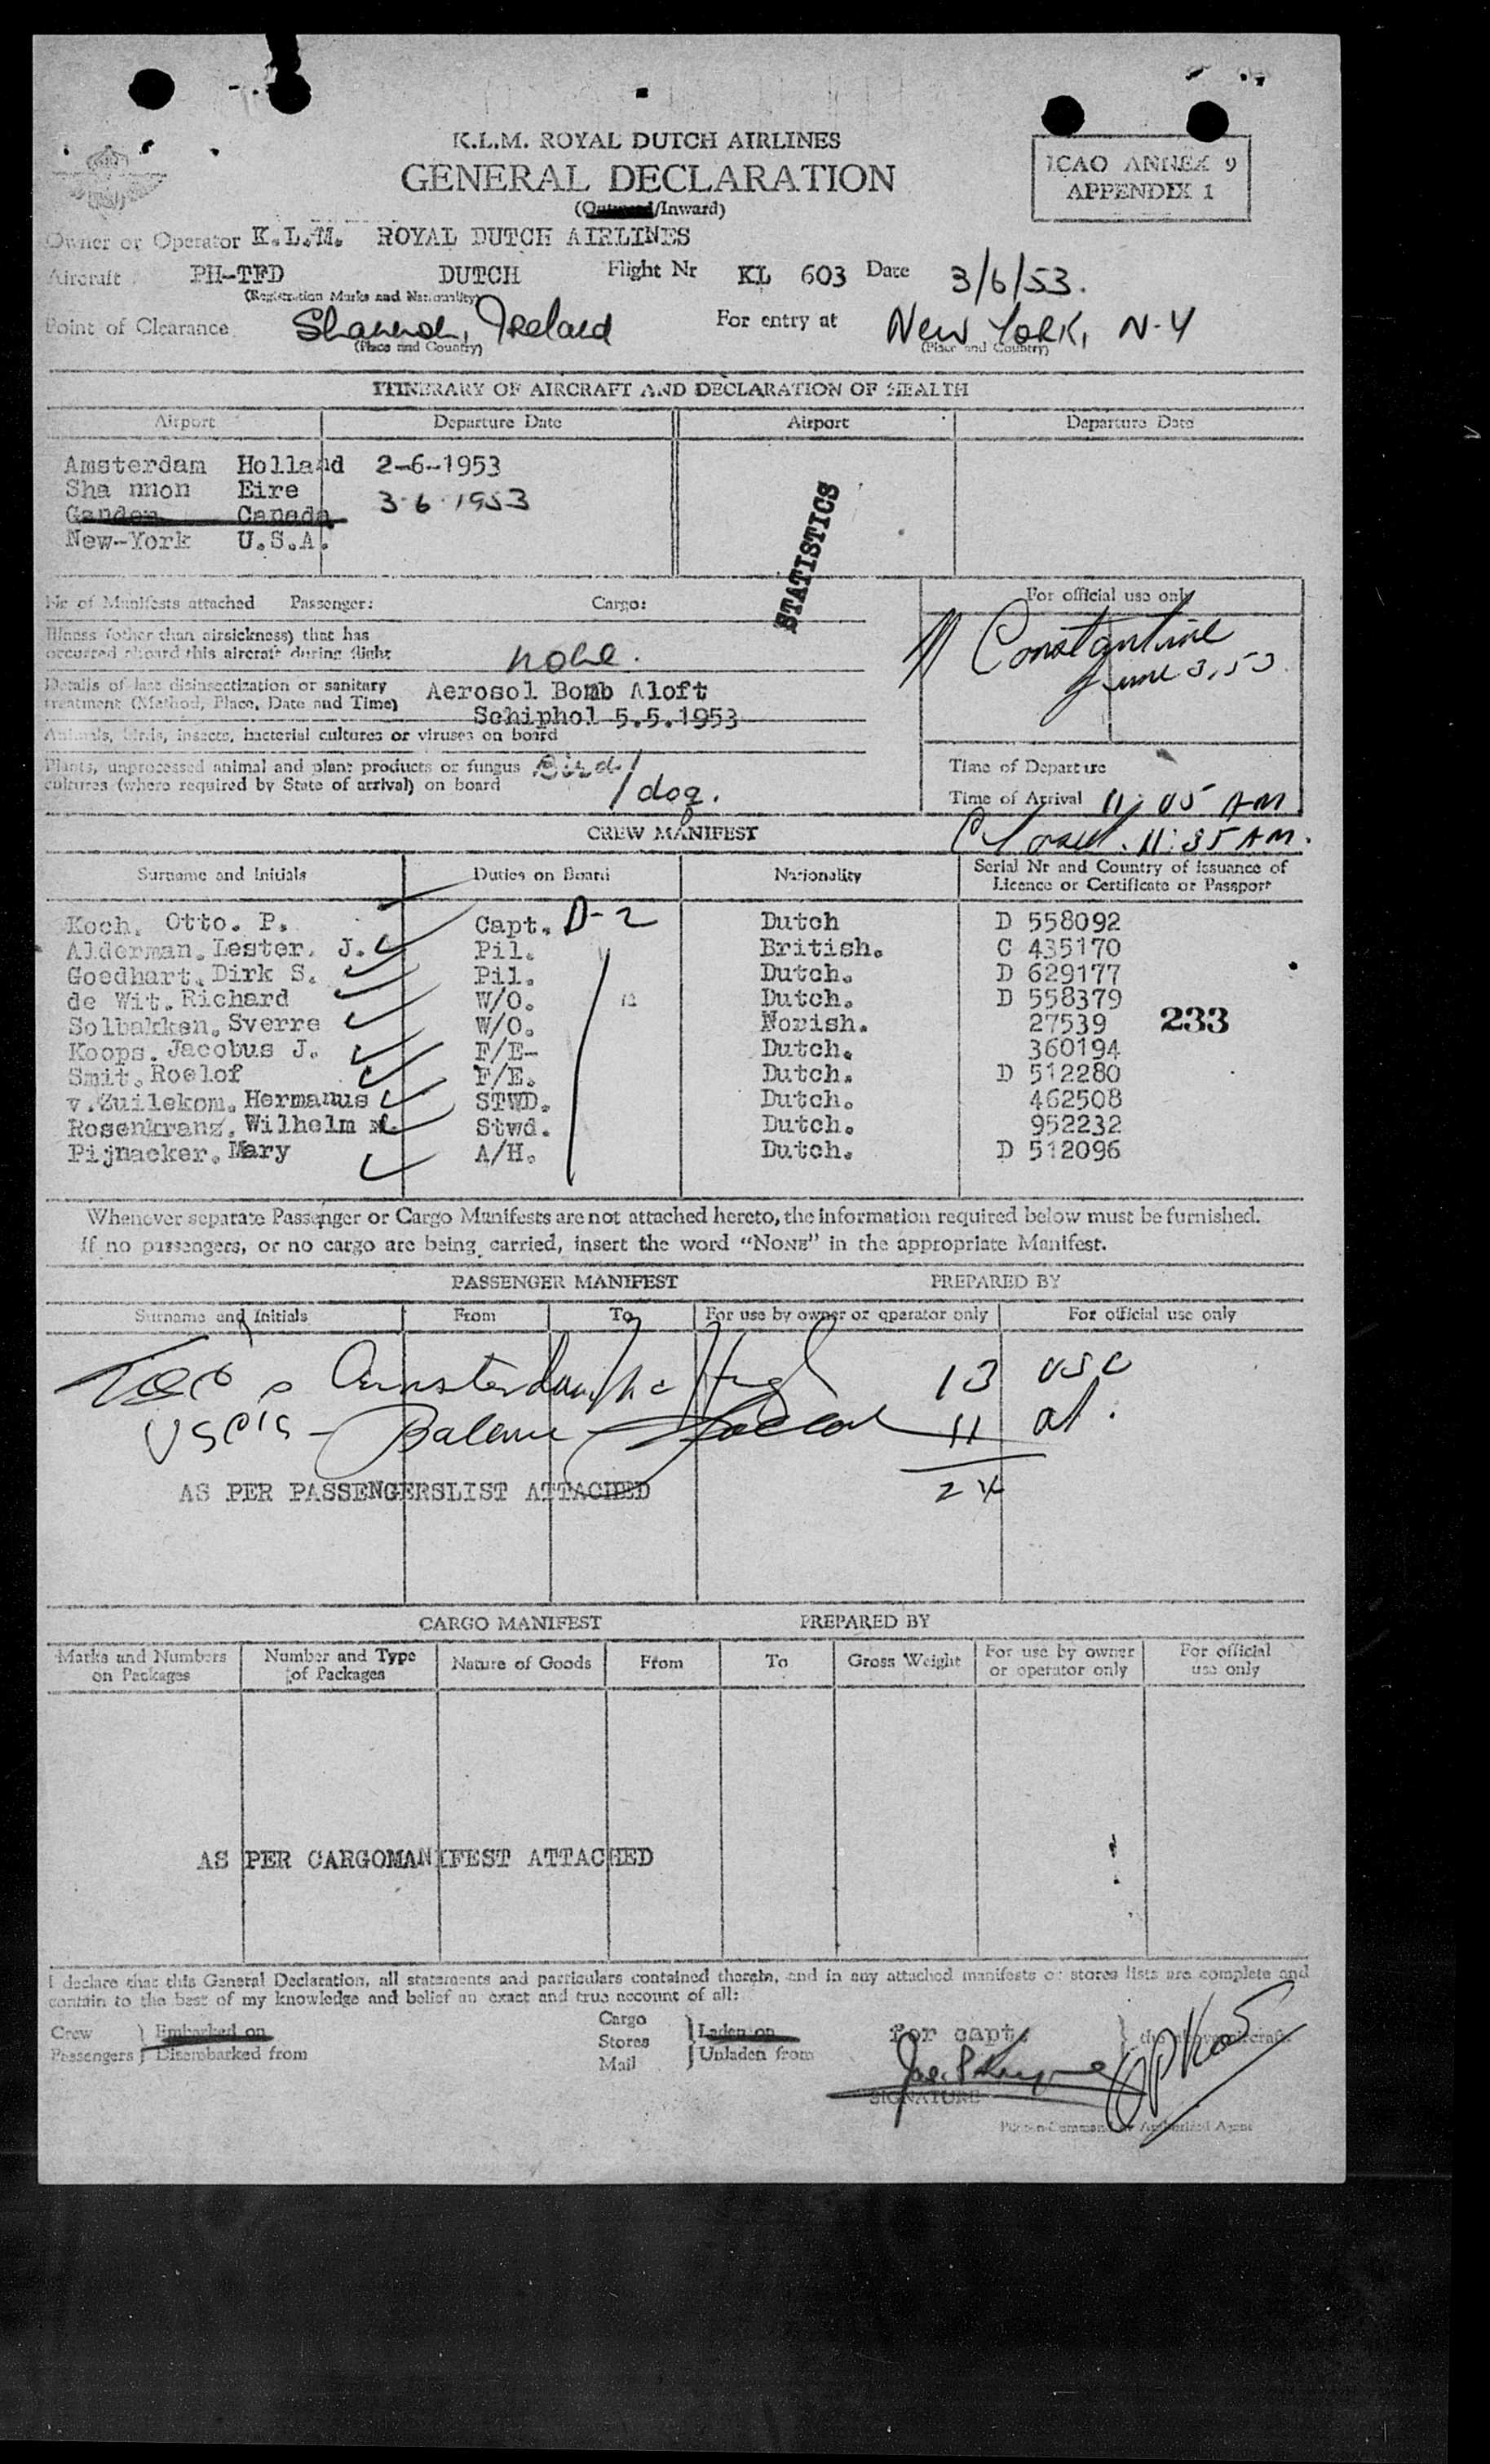 K.L.M. ROYAL DUTCH AIRLINES
GENERAL DECLARATION
(Outward/Inward)
ICAO ANNEX 9
APPENDIX 1
Owner or Operator K.L.M. ROYAL DUTCH AIRLINES
Aircraft PH-TFD DUTCH Flight Nr KL 603 Date 3/6/53.
(Registration Marks and Nationality)
Point of Clearance Shannon, Ireland For entry at New York, N-Y
(Place and Country) (Place and Country)
ITINERARY OF AIRCRAFT AND DECLARATION OF HEALTH
Airport Departure Date Airport Departure Date
Amsterdam Holland 2-6-1953
Sha nnon Eire 3.6.1953
Gander Canada
New-York U.S.A.
STATISTICS
Nr of Manifests attached Passenger: Cargo:
For official use only
Illness (other than airsickness) that has
occurred aboard this aircraft during flight none.
Constantine
June 3, 53
Details of last disinsectization or sanitary
treatment (Method, Place, Date and Time) Aerosol Bomb Aloft
Schiphol 5.5.1953
Animals, birds, insects, bacterial cultures or viruses on board
Plants, unprocessed animal and plant products or fungus
cultures (where required by State of arrival) on board
Bird /
1 dog.
Time of Departure
Time of Arrival 11:05 AM
11:35 AM.
CREW MANIFEST
Surname and Initials Duties on Board Nationality Serial Nr and Country of issuance of
Licence or Certificate or Passport
Koch. Otto. P. Capt. D-2 Dutch D 558092
Alderman. Lester. J. Pil. British. C 435170
Goedhart. Dirk S. Pil. Dutch. D 629177
de Wit. Richard W/O. Dutch. D 558379
Solbakken. Sverre W/O. Norish. 27539 233
Koops. Jacobus J. F/E- Dutch. 360194
Smit. Roelof F/E. Dutch. D 512280
v.Zuilekom. Hermanus STWD. Dutch. 462508
Rosenkranz. Wilhelm Stwd. Dutch. 952232
Pijnacker. Mary A/H. Dutch. D 512096
Whenever separate Passenger or Cargo Manifests are not attached hereto, the information required below must be furnished.
If no passengers, or no cargo are being carried, insert the word "NONE" in the appropriate Manifest.
PASSENGER MANIFEST PREPARED BY
Surname and Initials From To For use by owner or operator only For official use only
Amsterdam 13 USC
11 al.
AS PER PASSENGERSLIST ATTACHED 24
CARGO MANIFEST PREPARED BY
Marks and Numbers
on Packages
Number and Type
of Packages
Nature of Goods From To Gross Weight
For use by owner
or operator only
For official
use only
AS PER CARGOMANIFEST ATTACHED
I declare that this General Declaration, all statements and particulars contained therein, and in any attached manifests or stores lists are complete and
contain to the best of my knowledge and belief an exact and true account of all:
Crew
Passengers
Embarked on
Disembarked from
Cargo
Stores
Mail
Laden on
Unladen from
For capt.
the above aircraft
SIGNATURE
Pilot-in-Command Authorized Agent